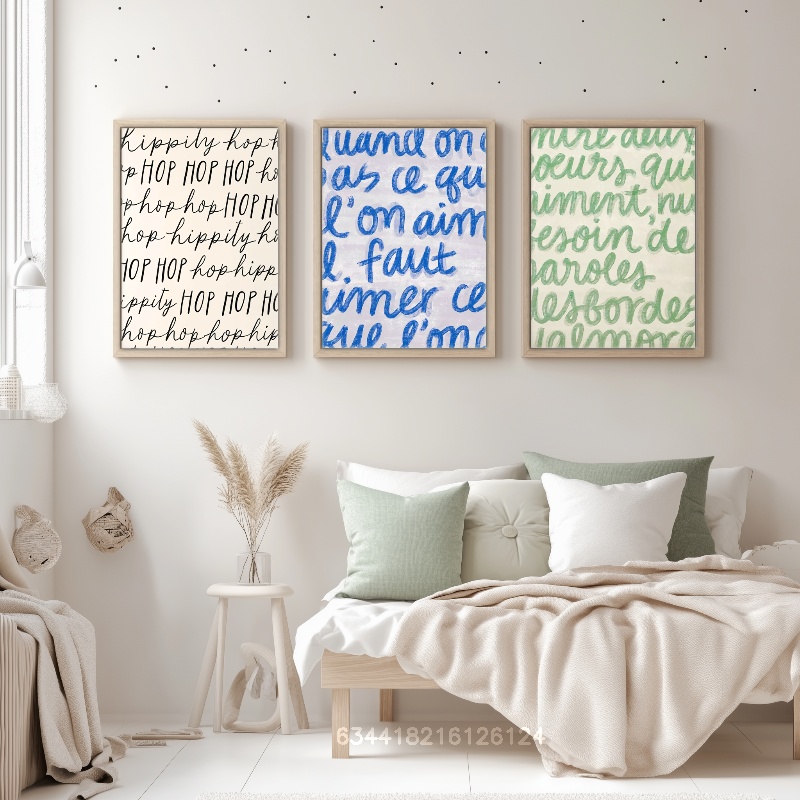 hippity hop h
p HOP HOP HOP ho
phophop HOP HO
hop hippity ho
HOP HOP hop hipp
ippity HOP HOP HO
hop hop hop hip
quand on
pas ce qu
l'on aim
l faut
aimer ce
que l'on
entre deux
coeurs qui
aiment, nu
besoin de
paroles
desbordes
valmore
634418216126124